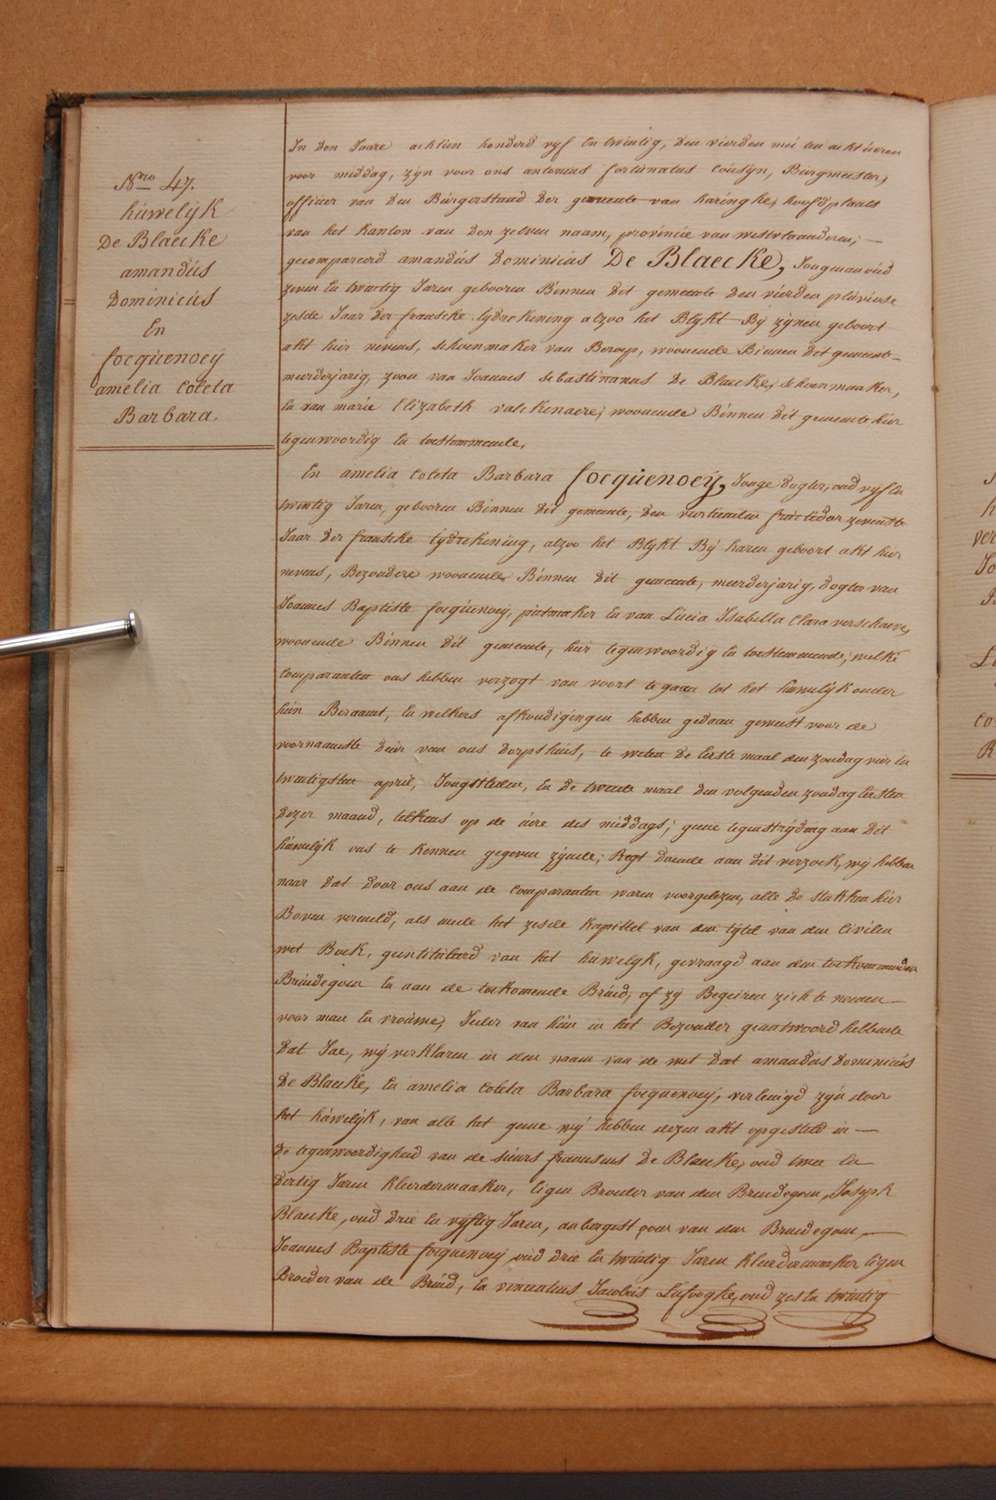 Nro 47.
húwelijk
De Blaecke
amandús
Dominicús
En
focqúenoeÿ
amelia Coleta
Barbara.
In den Jaare achtien honderd vijf en twintig, den vierden mei ten acht úeren
voor middag, zijn voor ons antonius fortúnatus Coúsijn, Búrgmeester,
officier van den Búrgerstand der gemeente van haringhe, hoofdplaats
van het kanton van den zelven naam, provincie van westvlaanderen;
gecompareerd amandús Dominicus De Blaecke, Jongman oúd
zeven en twintig Jaren gebooren Binnen dit gemeente den vierden plúviose
zesde Jaar der fransche tijdrekening alzoo het Blijkt Bij zijnen geboort
akt hier nevens, schoenmaker van Beroep, woonende Binnen dit gemeente
meerderjarig, zoon van Joannes Sebastinanus De Blaecke, schoenmaaker,
en van marie Elizabeth valckenaere, woonende Binnen dit gemeente hier
tegenwoordig en toestemmende,
En amelia Coleta Barbara focqúenoeÿ, Jonge dogter, oud vijf en
twintig Jaren, gebooren Binnen dit gemeente, den veertienden fructidor zevenste
Jaar der fransche tijdrekening, alzoo het Blijkt Bij haren geboort akt hier
nevens, Bezondere woonende Binnen dit gemeente, meerderjarig, dogter van
Joannes Baptiste focqúenoeij, pútmaker en van Lúcia Isabella Clara verschaeve,
woonende Binnen dit gemeente, hier tegenwoordig en toestemmende, welke
Comparanten ons hebben verzogt van voort te gaan tot het húwelijk onder
hún Beraamt, en welkers afkondigingen hebben gedaan geweest voor de
voornaamste deúr van ons dorpshúis, te weten de eerste maal den zondag vier en
twintigsten april, Jongstleden, en de tweede maal den volgenden zondag eersten
dezer maand, telkens op de úere des middags; geene tegenstrijding aan dit
húwelijk ons te kennen gegeven zijnde; Regt doende aan dit verzoek, wij hebben
naar dat door ons aan de Comparanten waren voorgelezen, alle de stukken hier
Boven vermeld, als mede het zesde kapittel van den tijtel van den Civilen
wet Boek, geintitúleerd van het húwelijk, gevraagd aan den toekomenden
Brúidegom en aan de toekomende Brúid, of zij Begeiren zich te nemen
voor man en vroúwe, Ieder van hún in het Bezonder geantwoord hebbende
dat Jae, wij verklaren in den naam van de wet dat amandus Dominicús
De Blaecke, en amelia Coleta Barbara focquenoeij, verEenigd zijn door
het húwelijk, van alle het geene wij hebben dezen akt opgesteld in
de tegenwoordigheid van de siúrs fransciscus De Blaecke, oud twee en
dertig Jaren kleedermaaker, Eigen Broeder van den Bruidegom, Joseph
Blaecke, oud drie en vijftig Jaren, van den Bruidegom,
Joannes Baptiste focquenoeij, oud drie en twintig Jaren kleedermaaker Eigen
Broeder van de Brúid, en vincentius Jacobús Lefoeghe, oud zes en twintig